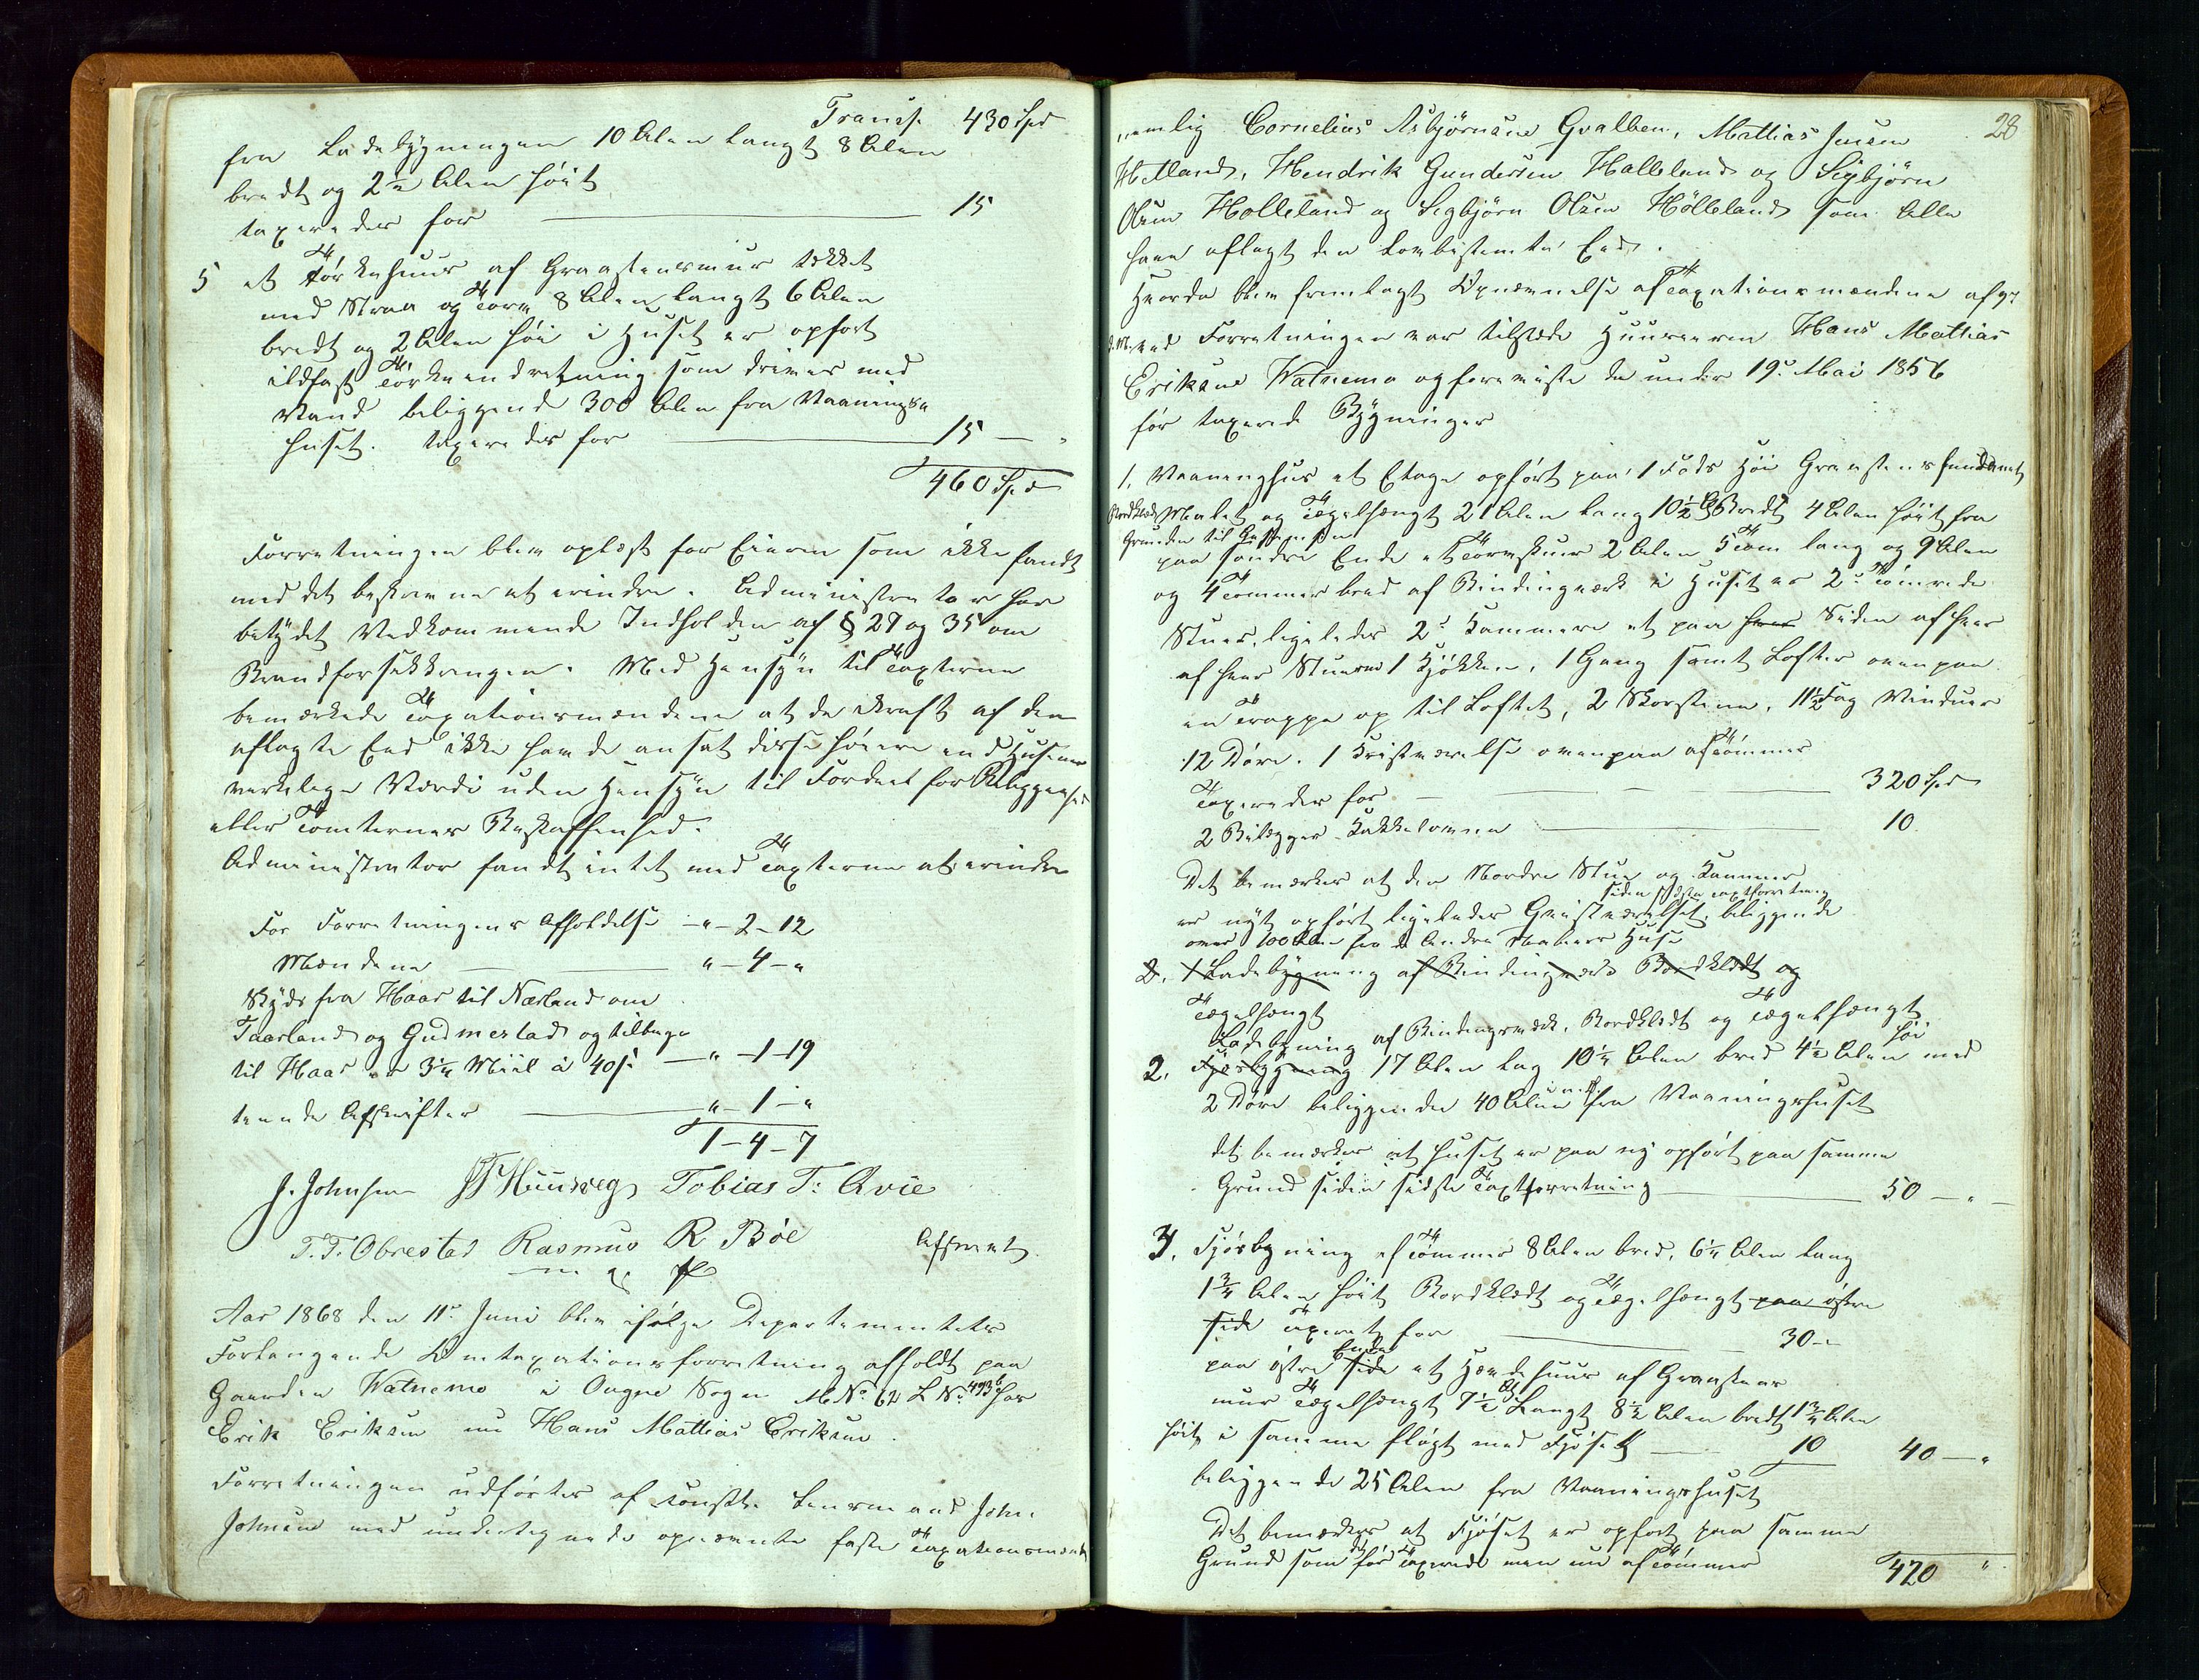 Transp. 430 Spd
fra Ladebygningen 10 Alen langt 8 Alen
bredt og 2½ Alen høit
taxeredes for 15
5 et Tørkehuus af Graasteensmuur tækket
med Straa og Torv 8 Alen langt 6 Alen
bredt og 2 Alen høi i Huset er opført
ildfast Tørkeindretning som drives med
Vand beliggende 300 Alen fra Vaanings
huset. taxeredes for 15 —
460 Spd
Forretningen blev oplæst for Eieren som ikke fandt
med det beskrevne at erindre. Administrator har
betydet Vedkommende Indholden af § 27 og 35 om
Brandforsikkringen. Med Hensyn til Taxterne
bemærkede Taxationsmændene at de i Kraft af den
aflagte Eed ikke havde ansat disse høiere end Husenes
virkelige Værdi uden Hensyn til Fordeel for Beliggenhed
eller Tomternes Beskaffenhed.
Administrator fandt intet med Taxterne at erindre
For Forretningens Afholdelse - " - 2 - 12
Mændene " - 4 - "
Skyds fra Haar til Nærland om
Taarland og Gudmestad og tilbage
til Haar er 3¼ Miil à 40 s. - " - 1 - 19
tvende Afskrifter " - 1 - "
1 - 4 - 7
J. Johnsen Huusveg Tobias T: Qvie
T. T. Obrestad Rasmus R Bøe Afskrevet.
m. p. P
Aar 1868 den 11te Juni blev ifølge Departementets
Forlangende Omtaxationsforretning afholdt paa
Gaarden Watnemo i Ougne Sogn M. No. 62 L No. 493b hos
Erik Eriksen nu Hans Mattias Eriksen.
Forretningen udførtes af konst. Lensmand John
Johnsen med undertegnede opnævnte faste Taxationsmænd
28
nemlig Cornelius Asbjørnsen Qvalben, Mattias Jensen
Hetland, Hendrik Gundersen Halleland og Sigbjørn
Olsen Holleland og Segbjørn Olsen Hølleland som Alle
have aflagt den lovbestemte Eed.
Hvorda blev fremlagt Opnævnelse af Taxationsmændene af 9de
d. M. Ved Forretningen var tilstede Huuseieren Hans Mattias
Eriksen Watnemo og foreviste de under 19de Mai 1856
før taxerede Bygninger
1. Vaaninghus et Etage opført paa 1 Fods Høi Graasteens fundament
Bordklædt Malet og Tægelhængt 21 Alen lang 10½ Al Bredt 4 Alen høit fra
Grunden til Gessimsen
paa søndre Ende et Torveskuur 2 Alen 5 Tom lang og 9 Alen
og 4 Tommer bred af Bindingværk i Huset er 2de Tømrede
Stuer, ligeledes 2de Kammere et paa hver Siden af hver
af hver Stuerne 1 Kjøkken, 1 Gang samt Lofter ovenpaa
en Trappe op til Loftet, 2 Skorstene, 11½ Fag Vinduer
12 Døre. 1 Kvistværelse ovenpaa af Tømmer
Taxeredes for 320 Spd
2 Bilægger Kakkelovne 10
Det bemærkes at den Nordre Stue og Kammer
siden sidste Taxtforretning
er nyt opført ligeledes Qvistværelset, beliggende
over 100 Alen fra de Andre Naboers Huse
2. 1 Ladebygning af Bindingværk Bordklædt og
Tægelhængt
Ladebygning af Bindingsværk, Bordklædt og Tægelhængt
2. Fjøsbygning 17 Alen lag 10¼ Alen bred 4½ Alen høi med
2 Døre beliggende 40 Alen fra Vaaningshuset
det bemærkes at huset er paa ny opført paa samme
Grund siden sidste Taxtforretning 50 - " -
3. Fjøsbygning af Tømmer 8 Alen bred, 6¼ Alen lang
1¾ Alen høit Bordklædt og Tægelhængt paa østre
side Taxeret for 30 - "
paa østre side Ende et Hændehuus af Graasteens
muur Tægelhængt 7½ Al Langt 8½ Alen bredt 1¾ Alen
høit, i samme fløgt med Fjøset 10 40 - "
beliggende 25 Alen fra Vaaningshuset
Det bemærkes at Fjøset er opført paa samme
Grund som det før Taxerede men nu af Tømmer
420 "